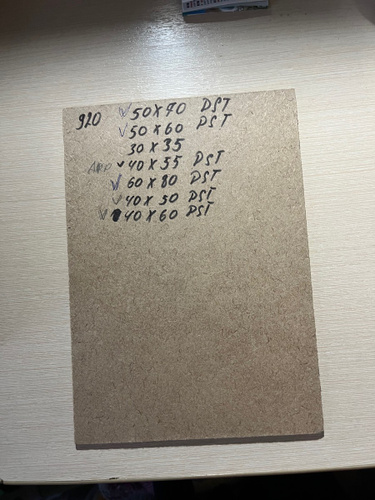 920 ✓50X70 DST
✓50X60 DST
30X35
✓40X55 DST
✓60X80 DST
✓40X50 DST
✓40X60 DST